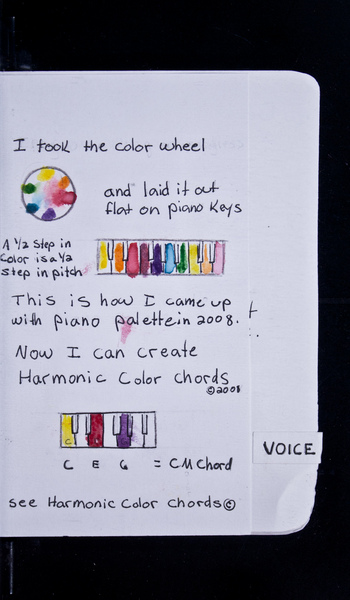 I took the color wheel
and laid it out
flat on piano keys
A 1/2 step in
color is a 1/2
step in pitch
This is how I came up
with piano palette in 2008.
Now I can create
Harmonic Color Chords
©2008
C
C E G = CM Chord
VOICE
see Harmonic Color Chords©